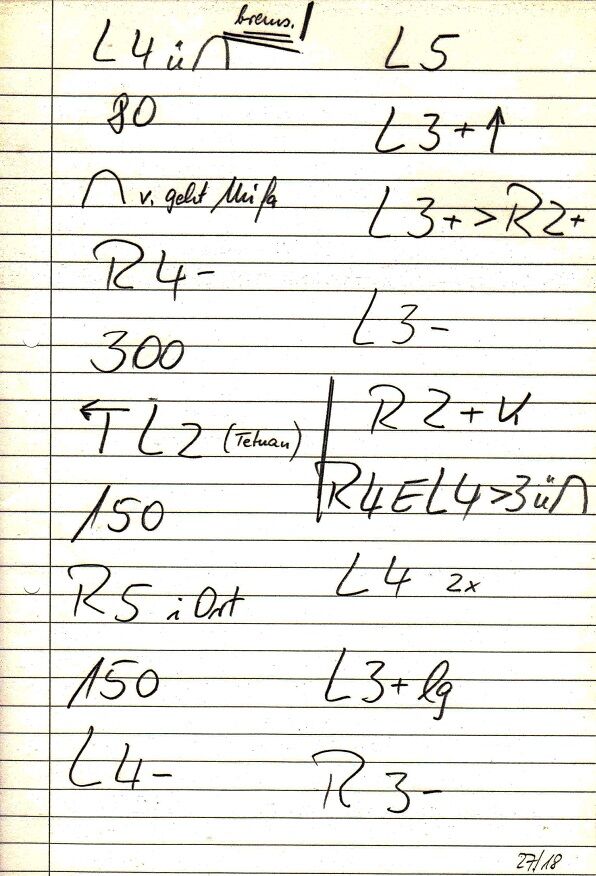 brems.!
L4 ü ∩
80
∩ v. geht
R4-
300
← T L2 (Tetuan)
150
R5 i Ort
150
L4-
L5
L3+ ↑
L3+ > R2+
L3-
R2+ K
R4 E L4>3 ü ∩
L4 2x
L3+ lg
R3-
27/18